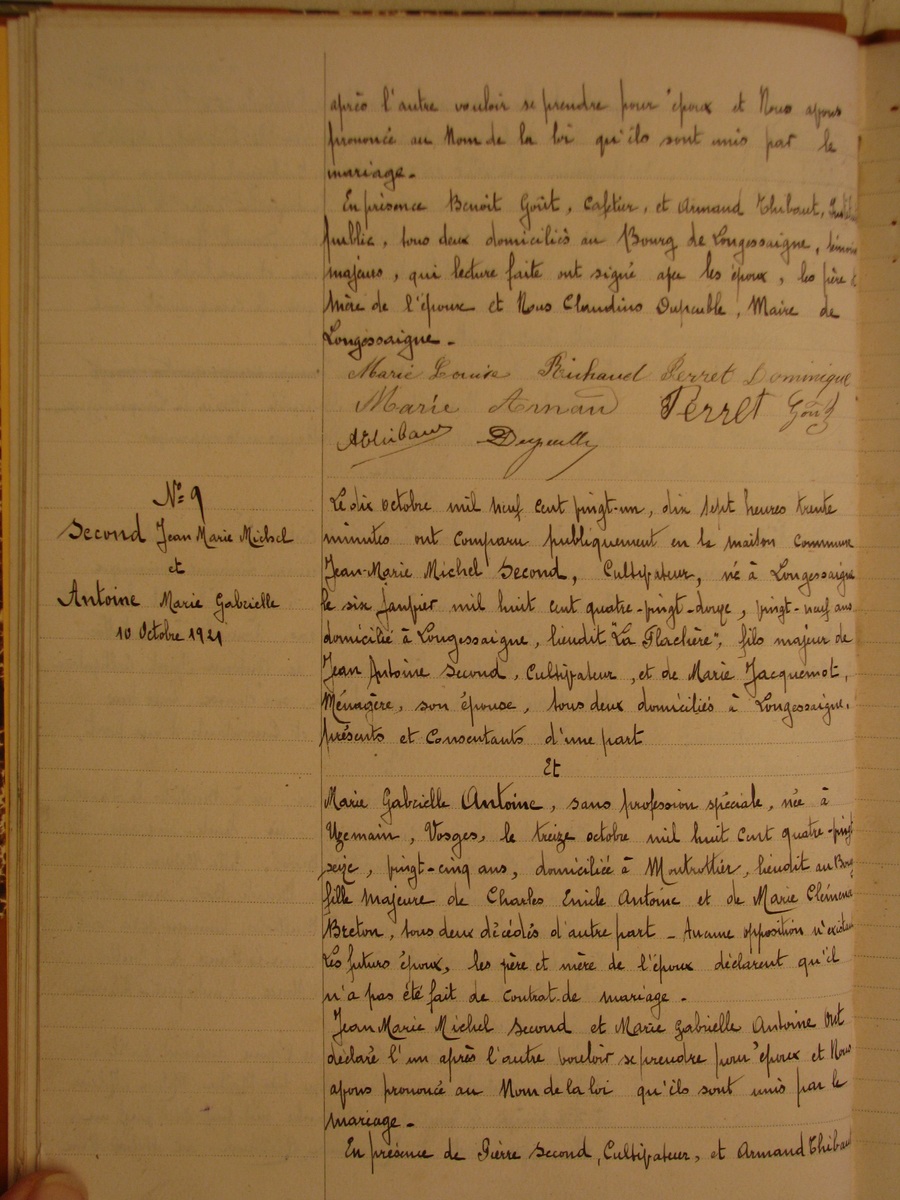 après l'autre vouloir se prendre pour époux et Nous avons
prononcé au Nom de la loi qu'ils sont unis par le
mariage.
En présence Benoit Goût, Cafetier, et Armand Thibaut,
public, tous deux domiciliés au Bourg de Longessaigne, témoins
majeurs, qui lecture faite ont signé avec les époux, les père et
Mère de l'époux et Nous Claudius Dupeuble, Maire de
Longessaigne.
Marie Louise Richaud Perret Dominique
Marie Arnaud Perret Goût
AThibaut Dupeuble
N° 9
Second Jean Marie Michel
et
Antoine Marie Gabrielle
10 Octobre 1921
Le dix octobre mil neuf cent vingt-un, dix sept heures trente
minutes ont comparu publiquement en la maison commune
Jean-Marie Michel Second, Cultivateur, né à Longessaigne
le six Janvier mil huit cent quatre-vingt-douze, vingt-neuf ans
domicilié à Longessaigne, lieudit "La Flachère", fils majeur de
Jean Antoine Second, Cultivateur, et de Marie Jacquemot,
Ménagère, son épouse, tous deux domiciliés à Longessaigne,
présents et Consentants d'une part
Et
Marie Gabrielle Antoine, sans profession spéciale, née à
Uzemain, Vosges, le treize octobre mil huit cent quatre-vingt
seize, vingt-cinq ans, domiciliée à Montrottier, lieudit au Bourg
fille majeure de Charles Emile Antoine et de Marie Clémence
Breton, tous deux décédés d'autre part - Aucune opposition n'existant
Les futurs époux, les père et mère de l'époux déclarent qu'il
n'a pas été fait de Contrat de mariage.
Jean Marie Michel Second et Marie Gabrielle Antoine Ont
déclaré l'un après l'autre vouloir se prendre pour époux et Nous
avons prononcé au Nom de la loi qu'ils sont unis par le
mariage.
En présence de Pierre Second, Cultivateur, et Armand Thibaut